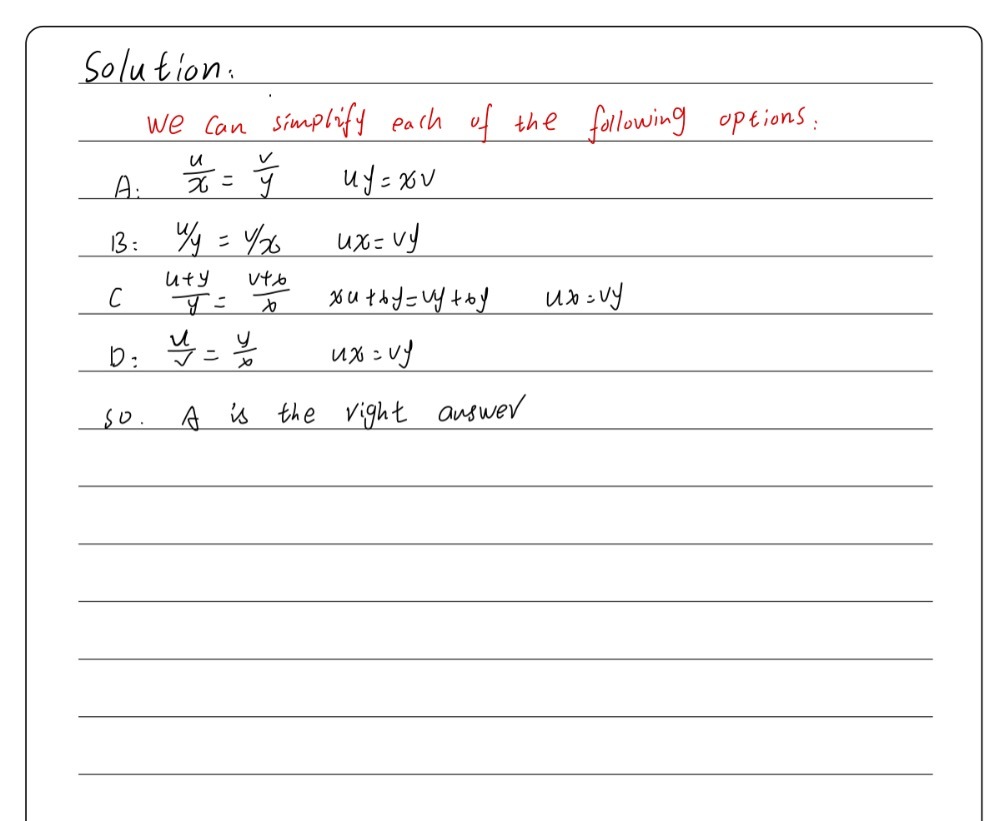 Solution:
We can simplify each of the following options:
A: u/x = v/y uy = xv
B: u/y = v/x ux = vy
C (u+y)/y = (v+x)/x xu + xy = vy + xy ux = vy
D: u/v = y/x ux = vy
so. A is the right answer